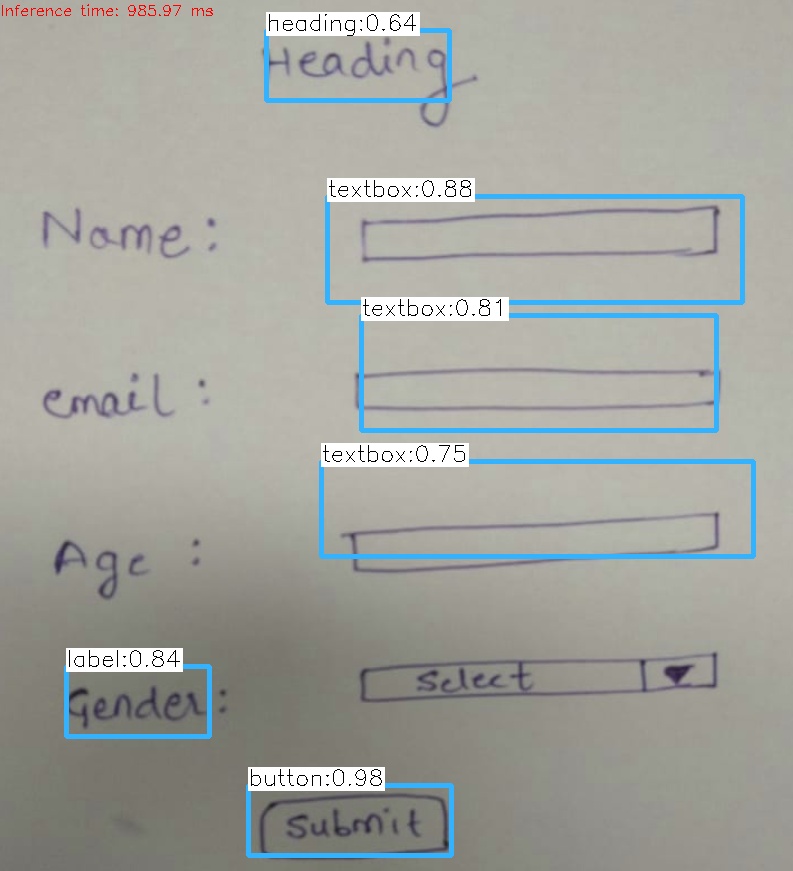 Inference time: 985.97 ms
heading:0.64
Heading
textbox:0.88
Name:
textbox:0.81
email :
textbox:0.75
Age :
label:0.84
Gender: Select
button:0.98
Submit